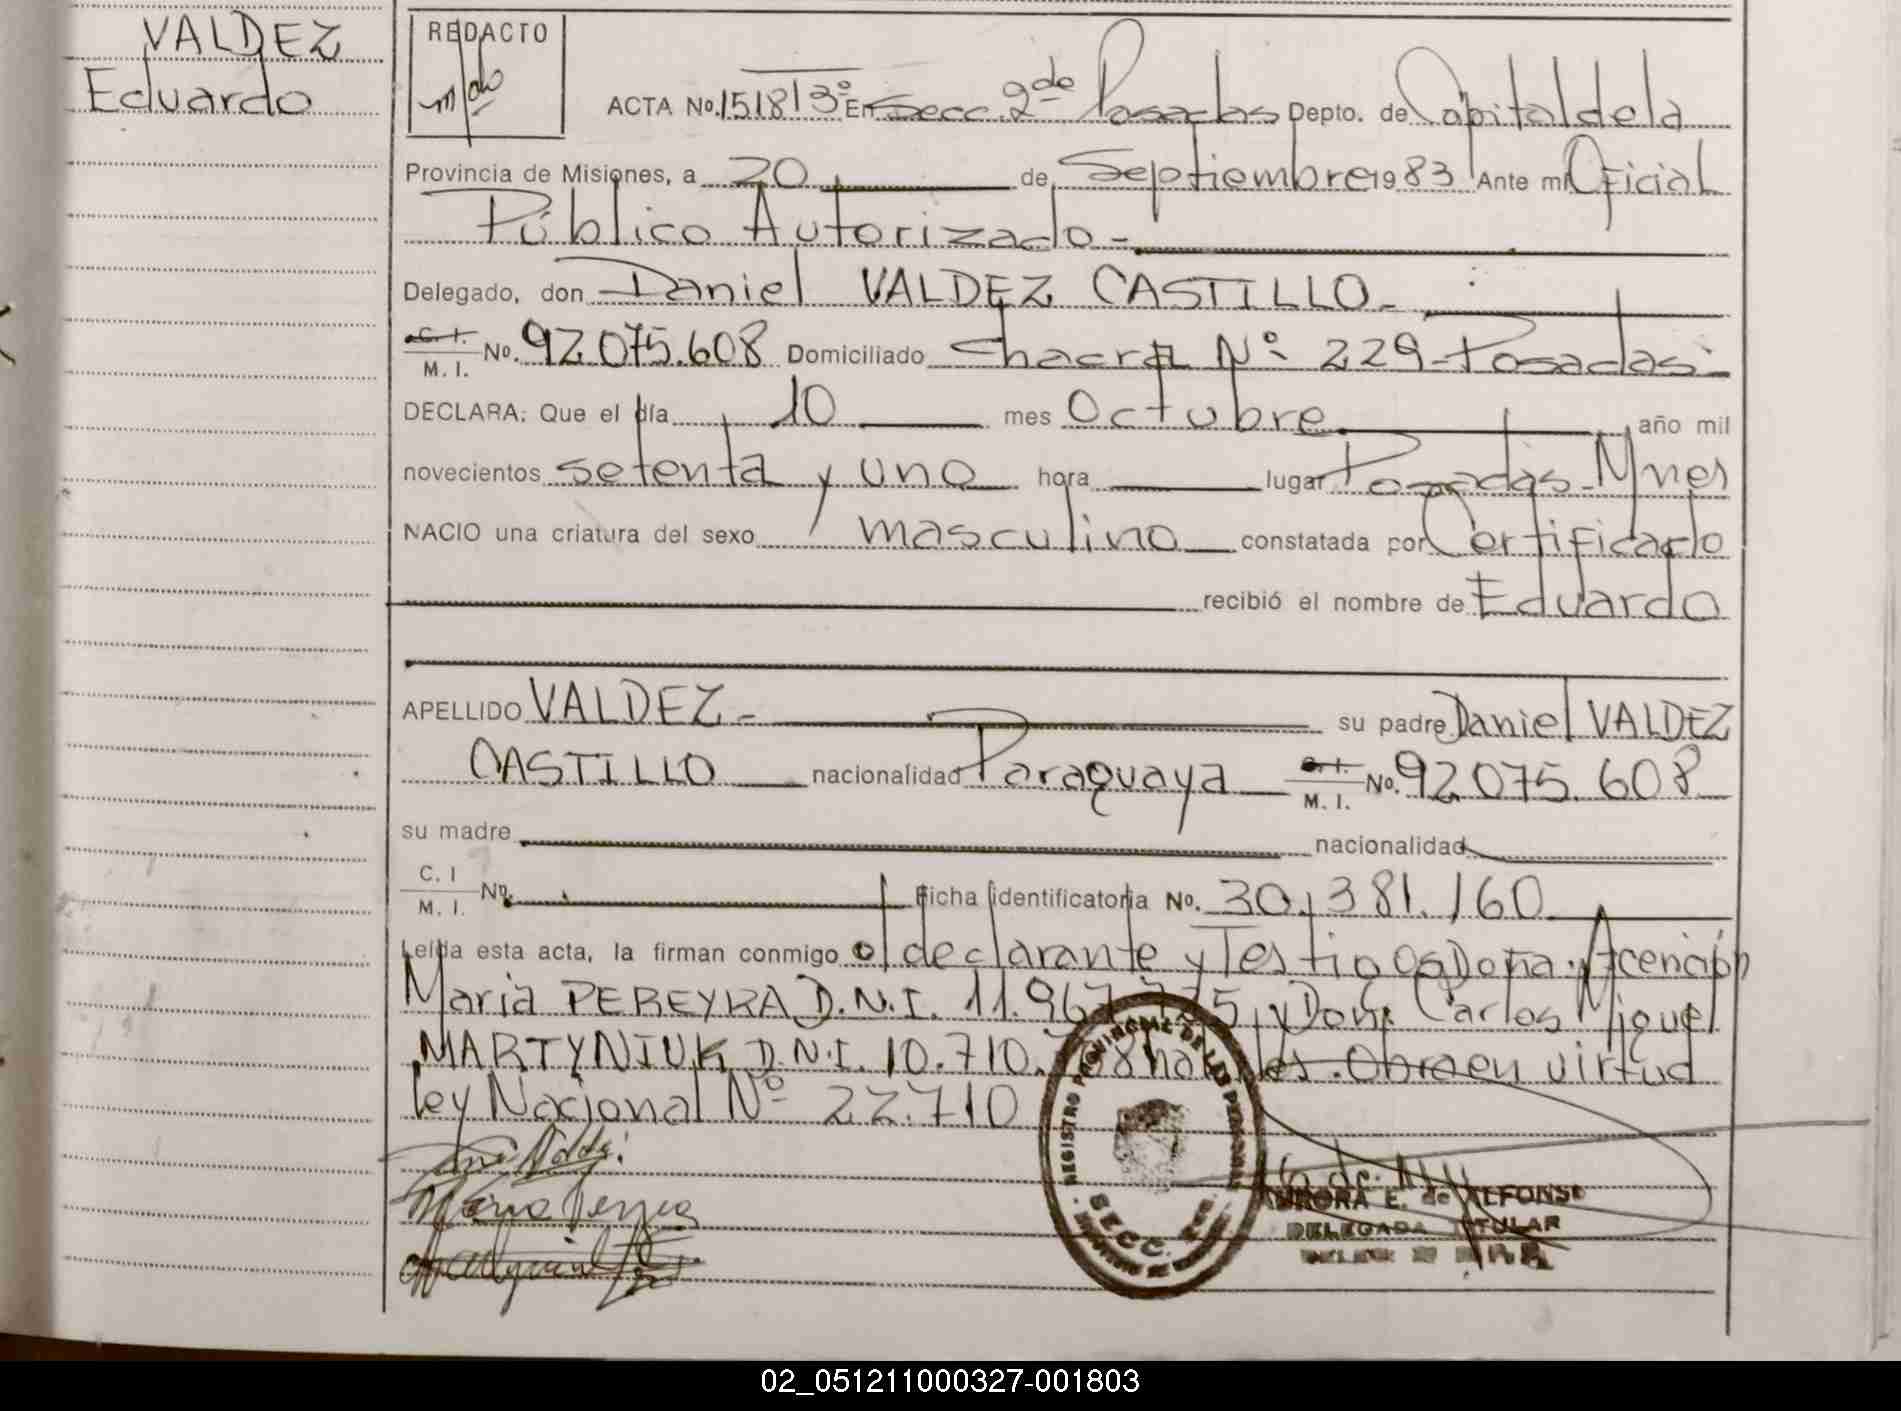 VALDEZ
Eduardo
REDACTO
ACTA No. 1518 13° En Secc. 2de Posadas Depto. de Capital de la
Provincia de Misiones, a 20 de Septiembre 1983 Ante mi Oficial
Público Autorizado -
Delegado, don Daniel VALDEZ CASTILLO -
C. I. M. I. No. 92.075.608 Domiciliado Chacra N° 229 - Posadas -
DECLARA: Que el día 10 mes Octubre año mil
novecientos setenta y uno hora lugar Posadas - Mnes
NACIO una criatura del sexo masculino constatada por Certificado
recibió el nombre de Eduardo
APELLIDO VALDEZ - su padre Daniel VALDEZ
CASTILLO nacionalidad Paraguaya C. I. M. I. No. 92.075.608
su madre nacionalidad
C. I M. I. No. Ficha identificatoria No. 30.381.160
Leída esta acta, la firman conmigo el declarante y Testigos Doña Acención
Maria PEREYRA D.N.I. 11.967. y Don Carlos Miguel
MARTYNIUK D.N.I. 10.710. Obra en virtud
ley Nacional N° 22.710
REGISTRO PROVINCIAL DE LAS PERSONAS
SECC.
AURORA E. de ALFONSO
DELEGADA TITULAR
02_051211000327-001803